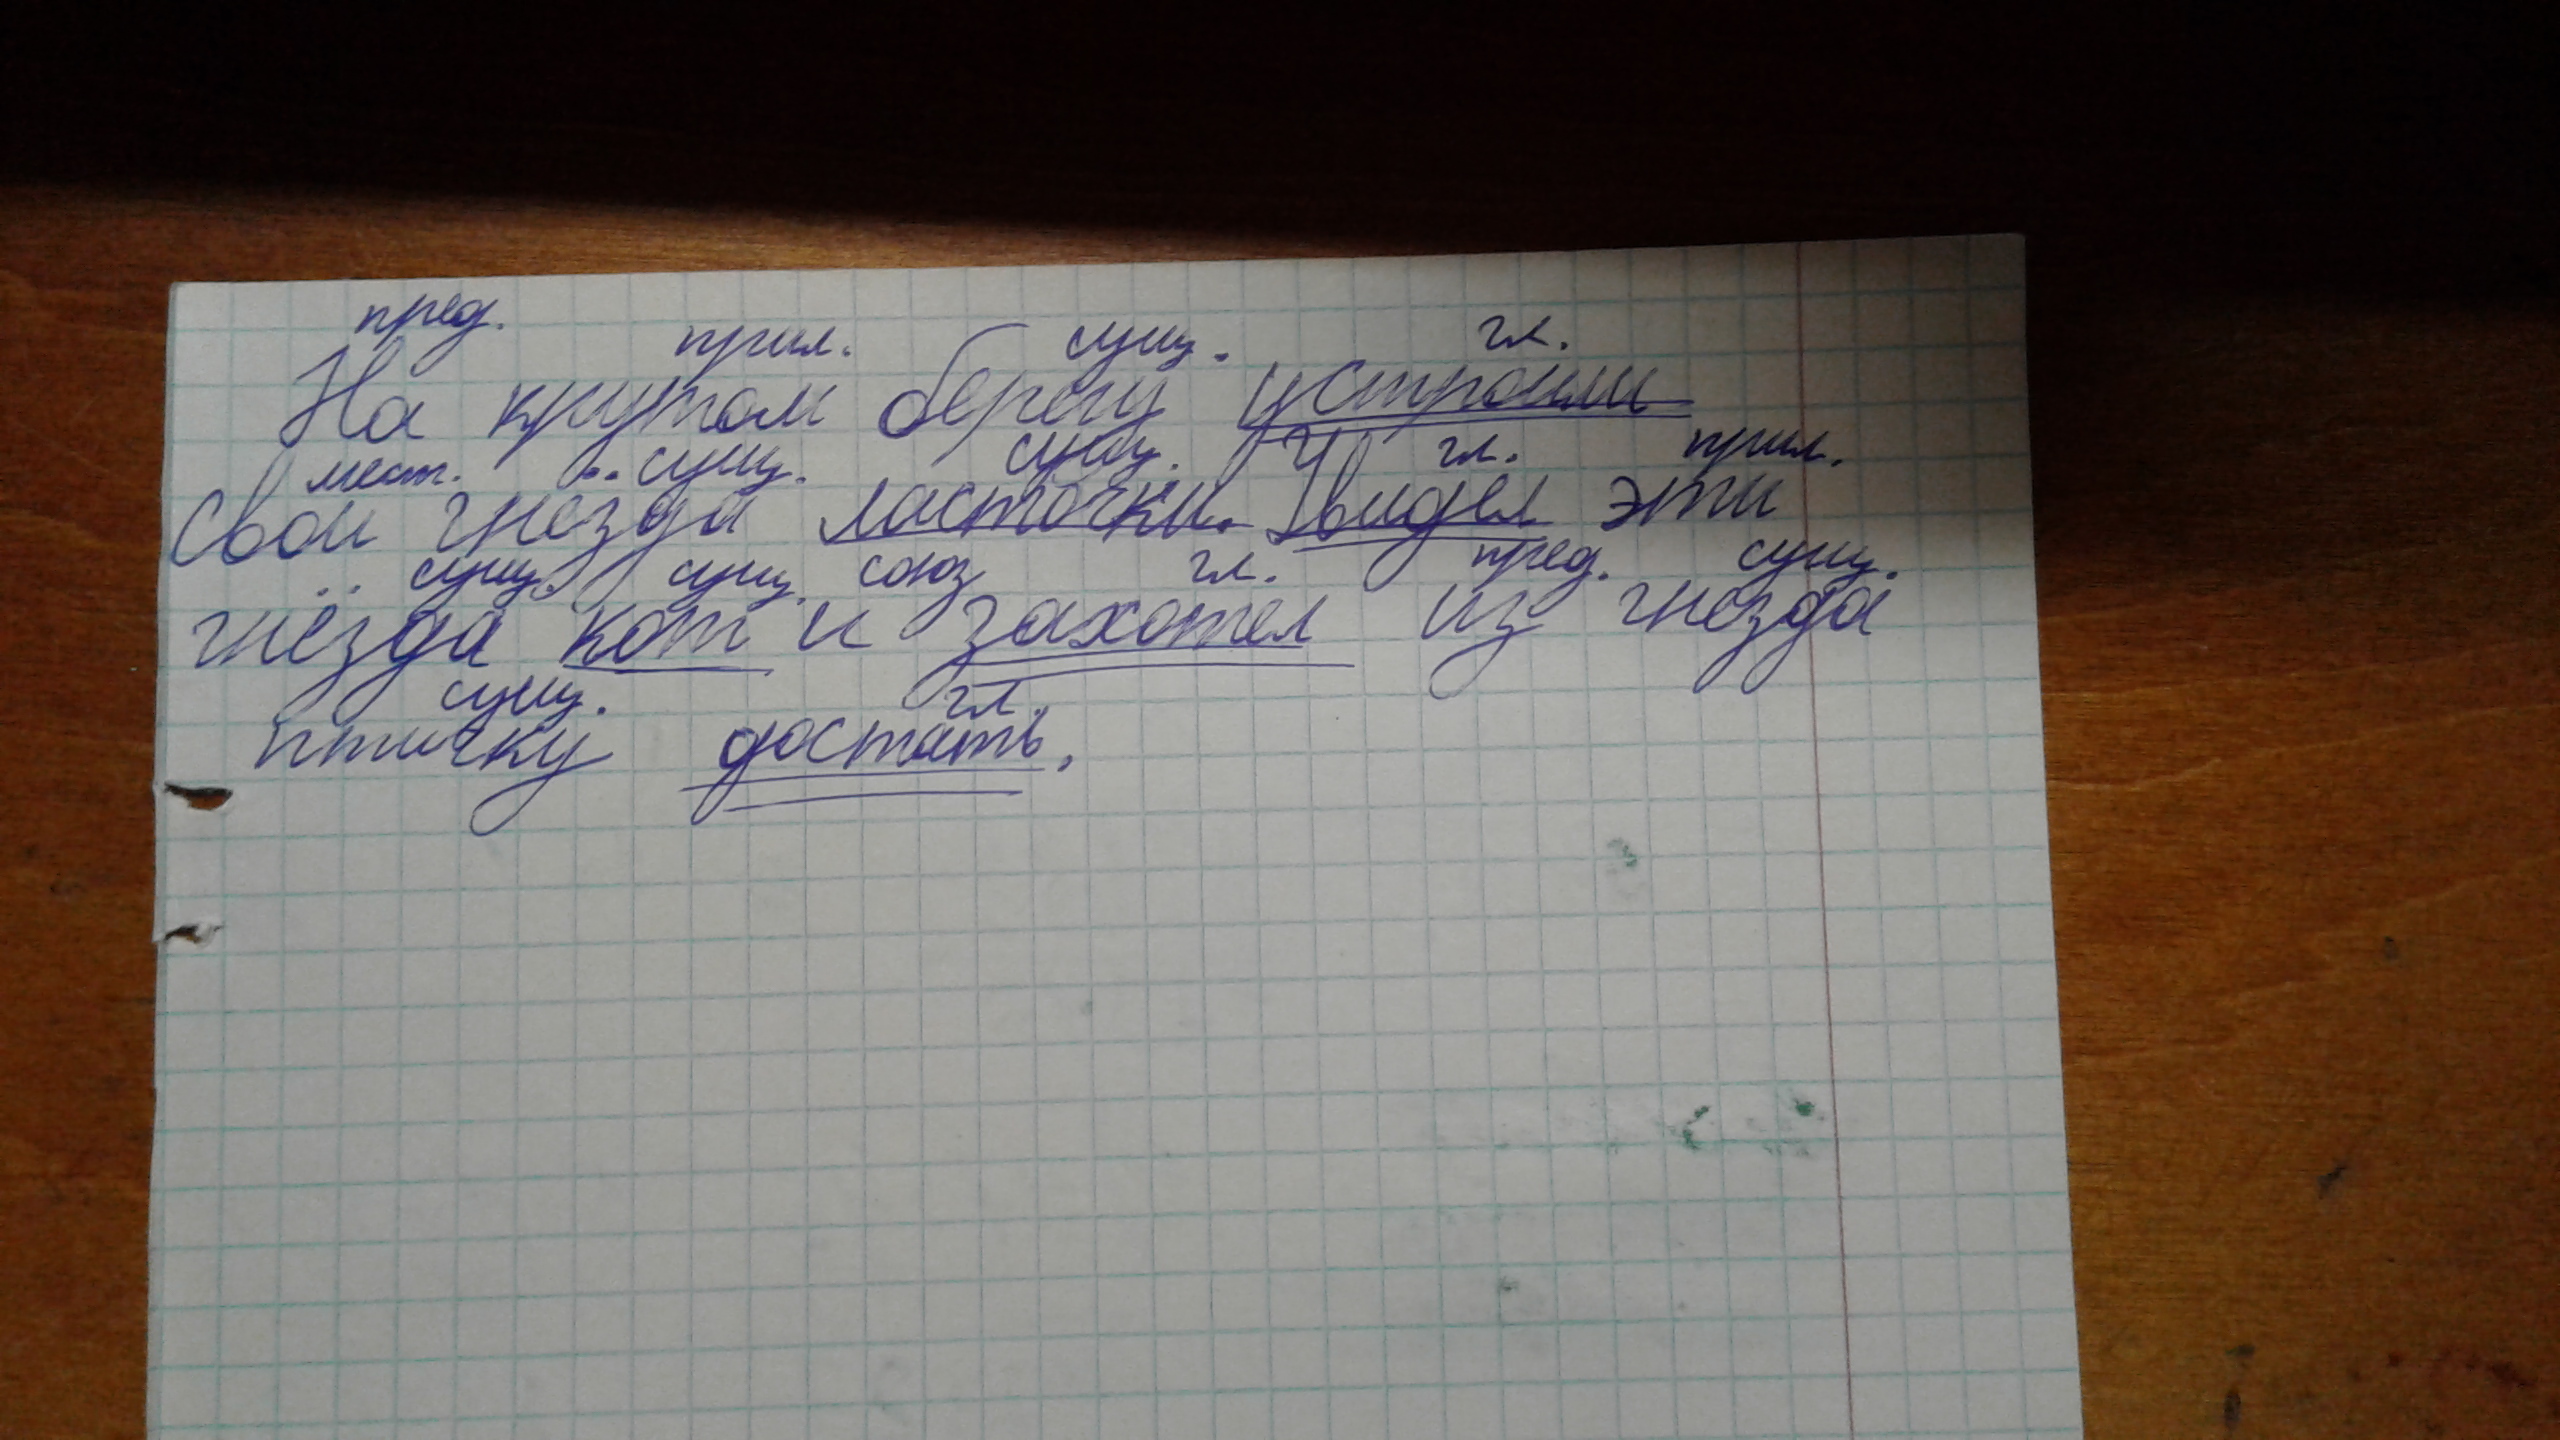 пред. прил. сущ. гл.
На крутом берегу устроили
мест. сущ. сущ. гл. прил.
свои гнёзда ласточки. Увидел эти
сущ. сущ. союз гл. пред. сущ.
гнёзда кот и захотел из гнезда
сущ. гл.
птичку достать.